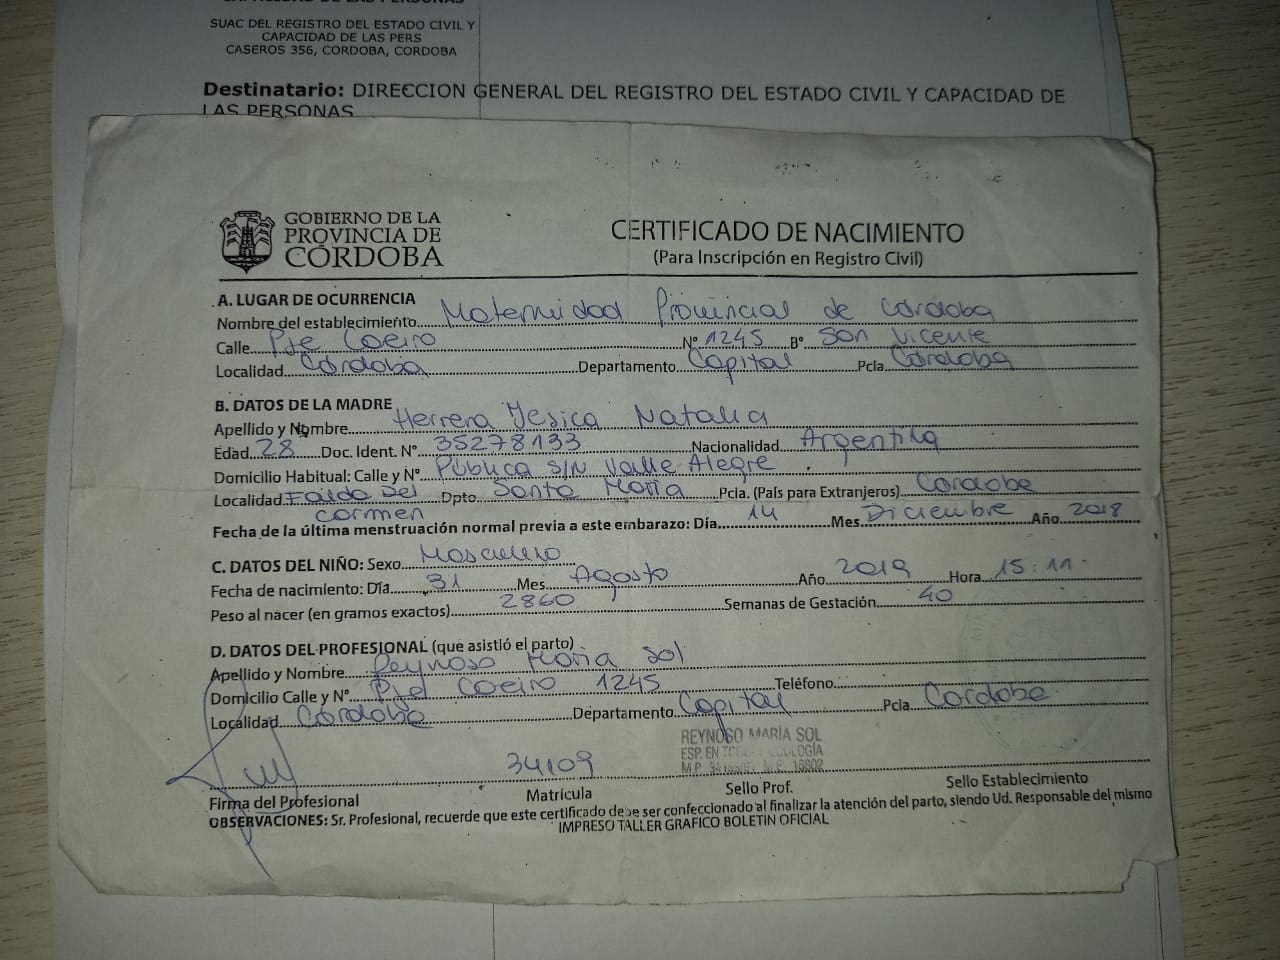 SUAC DEL REGISTRO DEL ESTADO CIVIL Y
CAPACIDAD DE LAS PERS
CASEROS 356, CORDOBA, CORDOBA
Destinatario: DIRECCION GENERAL DEL REGISTRO DEL ESTADO CIVIL Y CAPACIDAD DE
LAS PERSONAS
GOBIERNO DE LA
PROVINCIA DE
CÓRDOBA
CERTIFICADO DE NACIMIENTO
(Para Inscripción en Registro Civil)
A. LUGAR DE OCURRENCIA
Nombre del establecimiento Maternidad Provincial de Cordoba
Calle Pje Coeiro Nº 1245 Bº San Vicente
Localidad Cordoba Departamento Capital Pcla Cordoba
B. DATOS DE LA MADRE
Apellido y Nombre Herrera Yesica Natalia
Edad 28 Doc. Ident. Nº 35278133 Nacionalidad Argentina
Domicilio Habitual: Calle y Nº Publica S/N Valle Alegre
Localidad Falda Del Carmen Dpto Santa Maria Pcia. (País para Extranjeros) Cordoba
Fecha de la última menstruación normal previa a este embarazo: Día 14 Mes Diciembre Año 2018
C. DATOS DEL NIÑO: Sexo Masculino
Fecha de nacimiento: Día 31 Mes Agosto Año 2019 Hora 15:11
Peso al nacer (en gramos exactos) 2860 Semanas de Gestación 40
D. DATOS DEL PROFESIONAL (que asistió el parto)
Apellido y Nombre Reynoso Maria Sol
Domicilio Calle y Nº Pje Coeiro 1245 Teléfono
Localidad Cordoba Departamento Capital Pcla Cordoba
REYNOSO MARÍA SOL
ESP. EN
34109
Firma del Profesional Matrícula Sello Prof. Sello Establecimiento
OBSERVACIONES: Sr. Profesional, recuerde que este certificado debe ser confeccionado al finalizar la atención del parto, siendo Ud. Responsable del mismo
IMPRESO TALLER GRAFICO BOLETIN OFICIAL